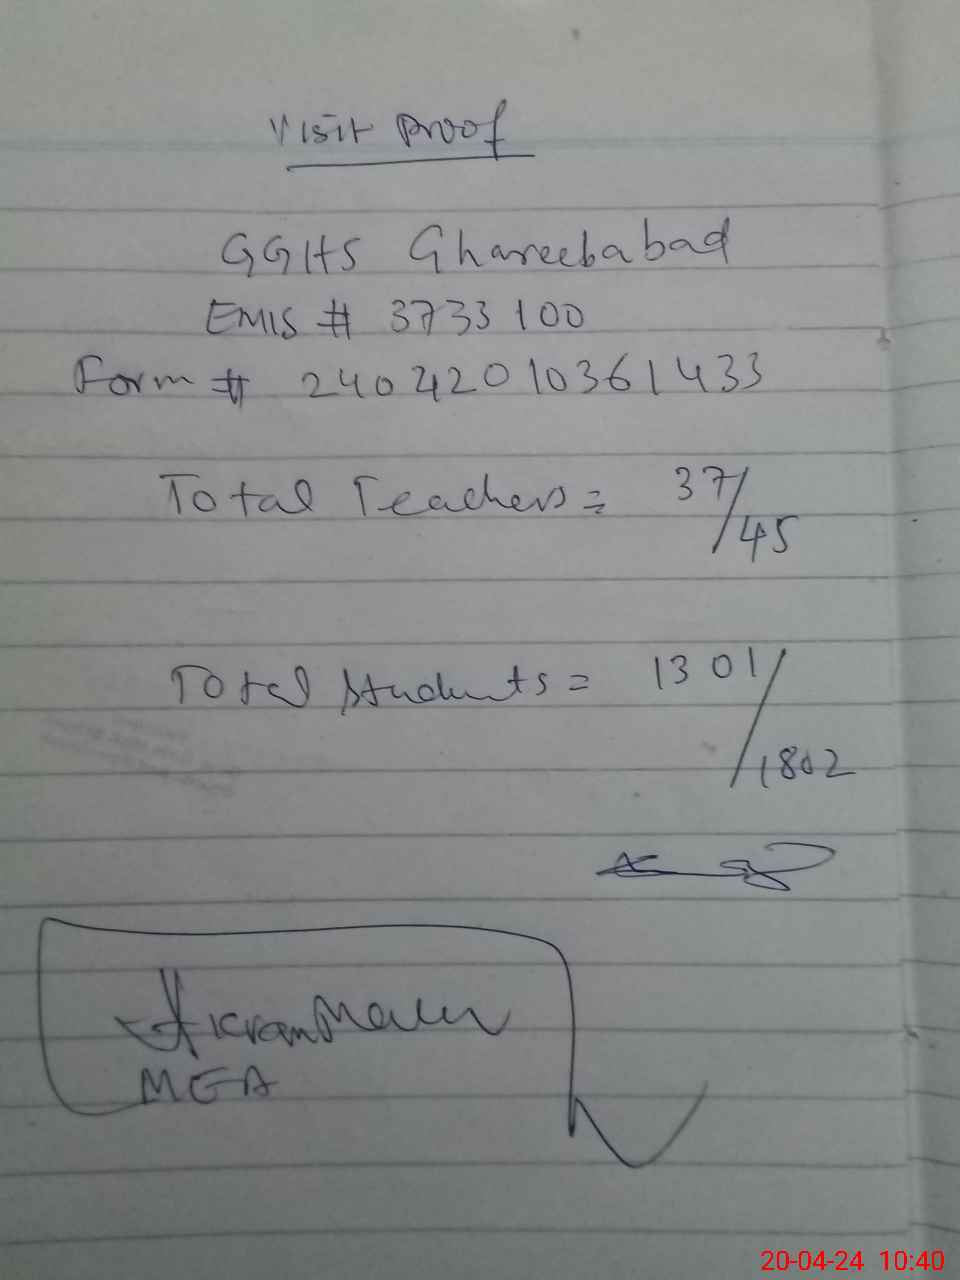 Visit Proof
GGHS Ghareebabad
EMIS # 3733100
Form # 24042010361433
Total Teachers = 37/45
Total Students = 1301/1802
MEA
20-04-24 10:40